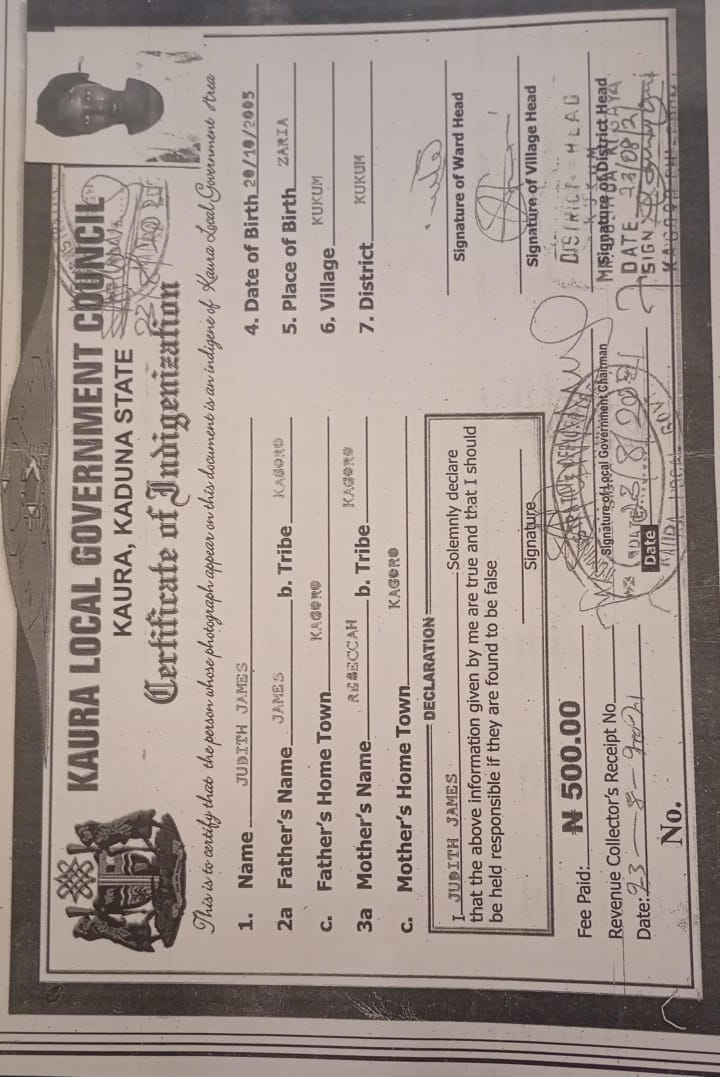 KAURA LOCAL GOVERNMENT COUNCIL
KAURA, KADUNA STATE
Certificate of Indigenization
This is to certify that the person whose photograph appear on this document is an indigene of Kaura Local Government Area
1. Name JUDITH JAMES
2a Father's Name JAMES b. Tribe KAGORO
c. Father's Home Town KAGORO
3a Mother's Name REBECCAH b. Tribe KAGORO
c. Mother's Home Town KAGORO
4. Date of Birth 20/10/2005
5. Place of Birth ZARIA
6. Village KUKUM
7. District KUKUM
DECLARATION
I JUDITH JAMES Solemnly declare
that the above information given by me are true and that I should
be held responsible if they are found to be false
Signature
Signature of Ward Head
Signature of Village Head
DISTRICT HEAD
Signature of District Head
DATE 23/08/21
SIGN
Fee Paid: ₦ 500.00
Revenue Collector's Receipt No.
Date: 23-8-2021
No.
Signature of Local Government Chairman
Date